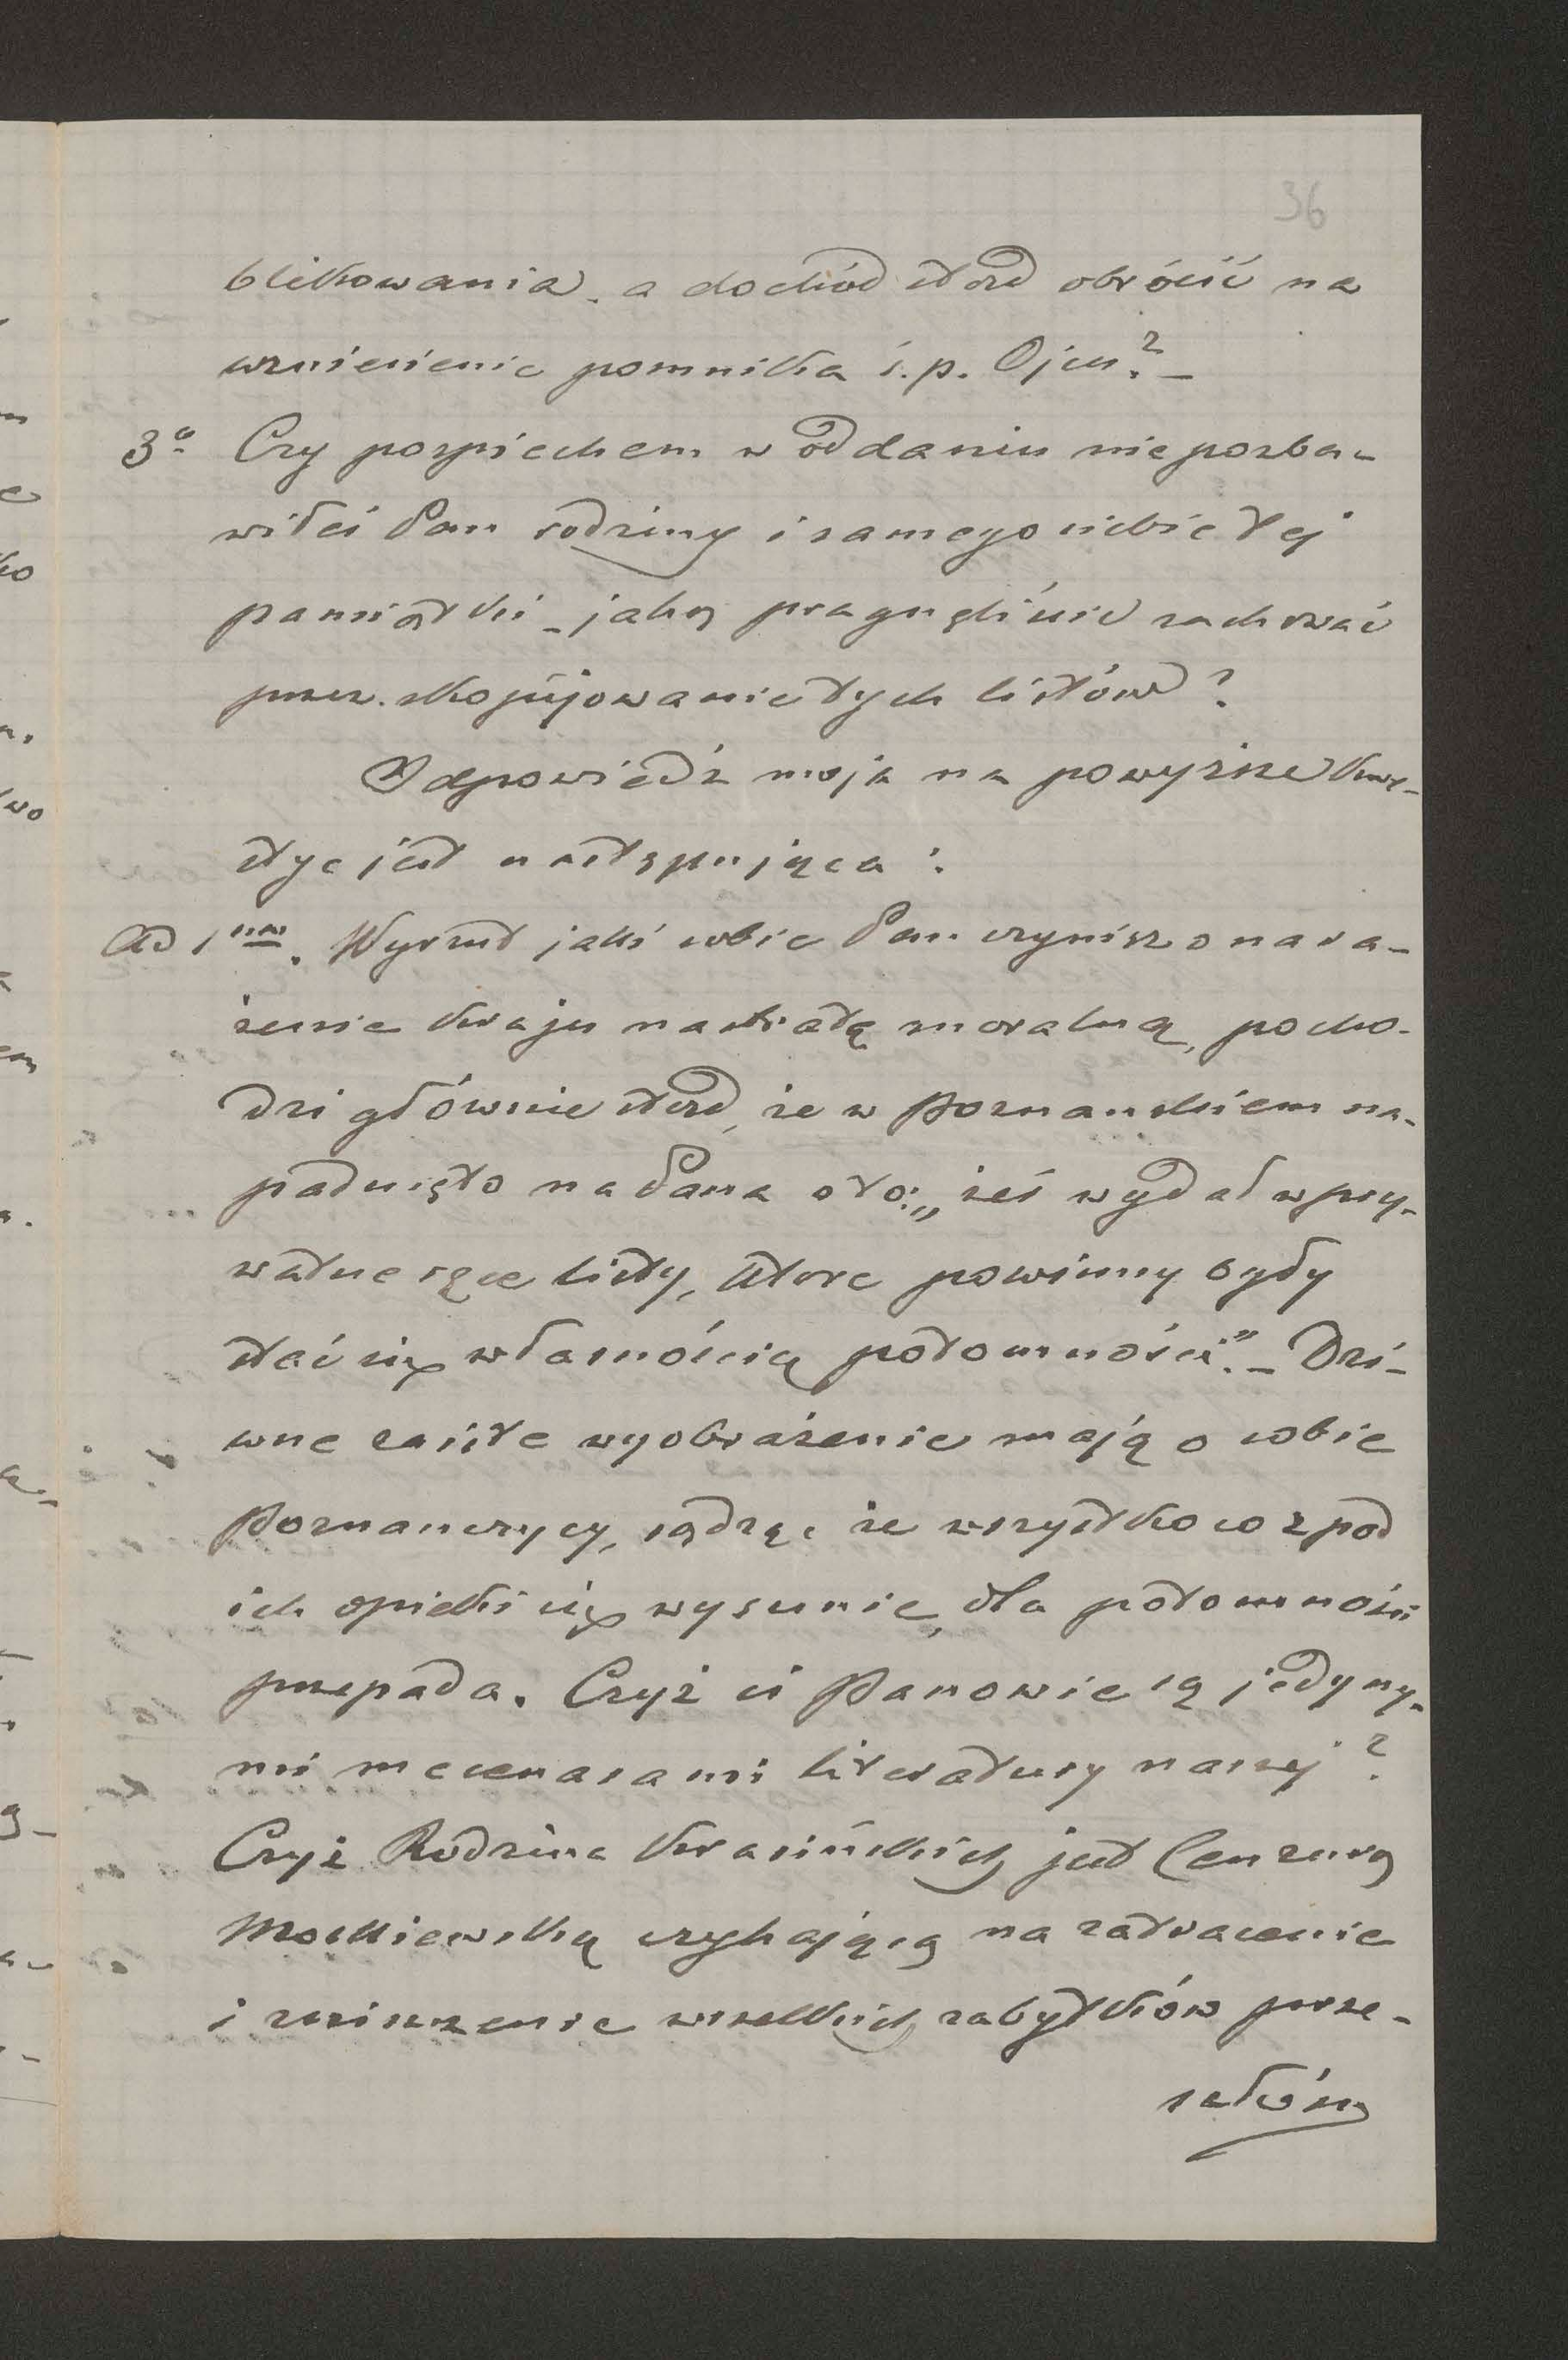 36
blikowania, a dochód stąd obrócić na
wzniesienie pomnika ś.p. Ojcu? –
3° Czy pospiechem w oddaniu nie pozba-
wiłeś Pan rodziny i samego siebie tej
pamiątki – jaką pragnęliście zachować
przez skopijowanie tych listów?
Odpowiedź moja na powyższe kwe-
stye jest następująca:
Ad 1mm. Wyrzut jaki sobie Pan czynisz o nara-
żenie kraju na stratę moralną, pocho-
dzi głównie stąd, że w Poznańskiem na-
padnięto na Pana o to: „żeś wydał w pry-
watne ręce listy, które powinny były
stać się własnością potomności." – Dzi-
wne zaiste wyobrażenie mają o sobie
Poznańczycy, sądząc że wszystko co z pod
ich opieki się wysunie, dla potomności
przepada. Czyż ci Panowie są jedyny-
mi mecenasami literatury naszej?
Czyż Rodzina Krasińskich jest Cenzurą
Moskiewską czyhającą na zatracenie
i zniszczenie wszelkich zabytków prze-
szłości